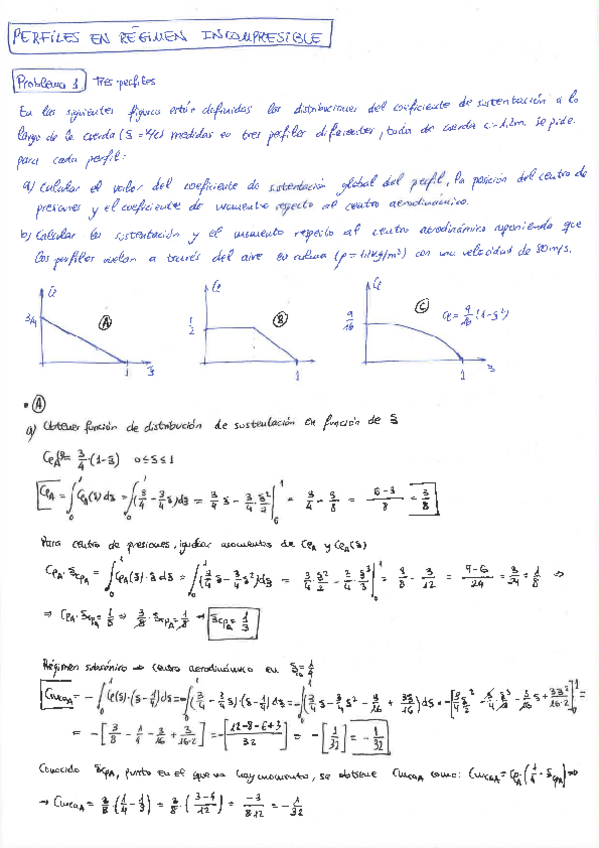 PERFILES EN RÉGIMEN INCOMPRESIBLE
Problema 1 Tres perfiles
En las siguientes figuras están definidas las distribuciones del coeficiente de sustentación a lo
largo de la cuerda (ŝ = x/c) medidas en tres perfiles diferentes, todos de cuerda c=1,2m. Se pide
para cada perfil:
a) Calcular el valor del coeficiente de sustentación global del perfil, la posición del centro de
presiones y el coeficiente de momento respecto al centro aerodinámico.
b) Calcular la sustentación y el momento respecto al centro aerodinámico suponiendo que
los perfiles vuelan a través del aire en calma (ρ = kg/m³) con una velocidad de 80 m/s.
Cl Cl Cl
3/4 A 1/2 B 9/16 C Cl = 9/16 (1-ŝ²)
1 ŝ 1 1 ŝ
• A
a) Obtener función de distribución de sustentación en función de ŝ
ClA(ŝ) = 3/4 · (1-ŝ) 0≤ŝ≤1
ClA = ∫₀¹ Cl(ŝ) dŝ = ∫₀¹ (3/4 - 3/4 ŝ) dŝ = 3/4 ŝ - 3/4 · ŝ²/2 |₀¹ = 3/4 - 3/8 = 6-3/8 = 3/8
Para centro de presiones, igualar momentos de ClA y ClA(ŝ)
ClA · ŝcpA = ∫₀¹ ClA(ŝ) · ŝ dŝ = ∫₀¹ (3/4 ŝ - 3/4 ŝ²) dŝ = 3/4 · ŝ²/2 - 3/4 · ŝ³/3 |₀¹ = 3/8 - 3/12 = 9-6/24 = 3/24 = 1/8 ⇒
⇒ ClA · ŝcpA = 1/8 ⇒ 3/8 · ŝcpA = 1/8 → ŝcpA = 1/3
Régimen subsónico → centro aerodinámico en ŝca = 1/4
CmcaA = - ∫₀¹ Cl(ŝ) · (ŝ - 1/4) dŝ = - ∫₀¹ (3/4 - 3/4 ŝ) · (ŝ - 1/4) dŝ = - ∫₀¹ (3/4 ŝ - 3/4 ŝ² - 3/16 + 3ŝ/16) dŝ = - [3/4 ŝ²/2 - 3/4 · ŝ³/3 - 3/16 ŝ + 3ŝ²/16·2]₀¹ =
= - [3/8 - 1/4 - 3/16 + 3/16·2] = - [12-8-6+3/32] = - [1/32] = - 1/32
Conocido ŝcpA, punto en el que no hay momento, se obtiene CmcaA como: CmcaA = ClA · (1/4 - ŝcpA) ⇒
→ CmcaA = 3/8 · (1/4 - 1/3) = 3/8 · (3-4/12) = -3/8·12 = - 1/32